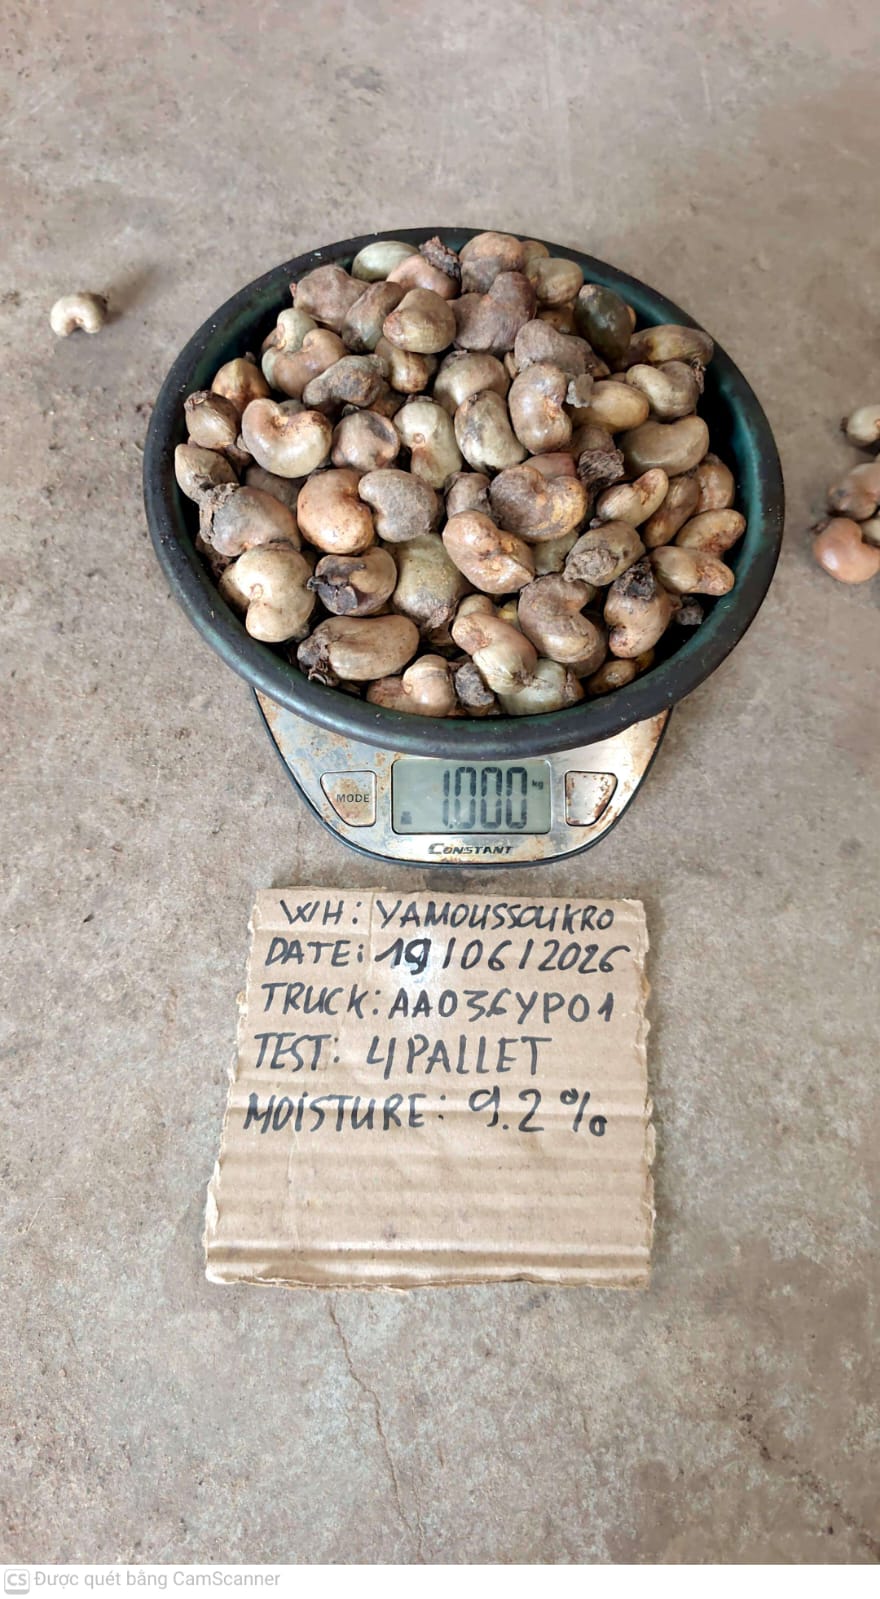 MODE
1.000 kg
CONSTANT
W/H: YAMOUSSOUKRO
DATE: 19/06/2026
TRUCK: AA036YP01
TEST: 4PALLET
MOISTURE: 9.2%
CS Được quét bằng CamScanner